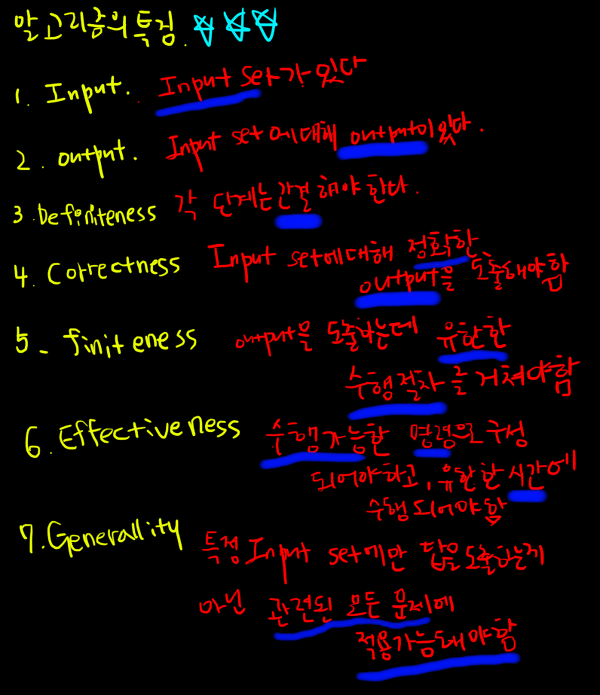 알고리즘의 특징. ☆☆☆
1. Input. Input set가 있다
2. output. Input set에 대해 output이 있다.
3. Definiteness 각 단계는 간결해야 한다.
4. Correctness Input set에 대해 정확한
output을 도출해야 함
5. finiteness output을 도출하는데 유한한
수행 절차를 거쳐야함
6. Effectiveness 수행가능한 명령으로 구성
되어야하고, 유한한 시간에
수행되어야 함
7. Generallity 특정 Input set에만 답을 도출하는게
아닌 관련된 모든 문제에
적용가능해야함